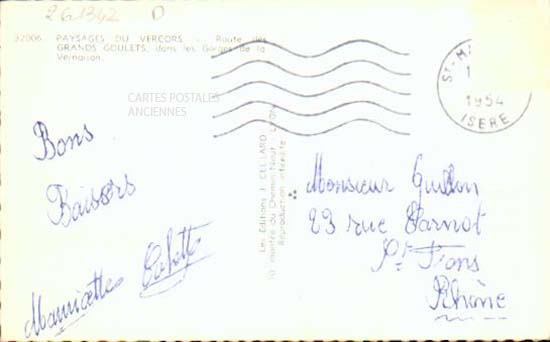 261342 D
32006 PAYSAGES DU VERCORS - Route des
GRANDS GOULETS, dans les Gorges de la
Vernaison.
CARTES POSTALES
ANCIENNES
ST-MA
1
1954
ISERE
Bons
Baisers
Mauricette Colette
Les Editions J. CELLARD
10 montée du Chemin-Neuf - LYON
Reproduction interdite
Monsieur
23 rue Carnot
St Fons
Rhône